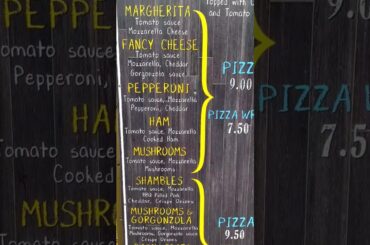 MARGHERITA
Tomato sauce
Mozzarella Cheese
FANCY CHEESE
Tomato sauce
Mozzarella, Cheddar
Gorgonzola sauce
PEPPERONI
Tomato sauce, Mozzarella
Pepperoni, Cheddar
HAM
Tomato sauce, Mozzarella
Cooked Ham
MUSHROOMS
Tomato sauce, Mozzarella
Mushrooms
SHAMBLES
Tomato sauce, Mozzarella
BBQ Pulled Pork
Cheddar, Crispy Onions
MUSHROOMS &
GORGONZOLA
Tomato sauce, Mozzarella
Mushrooms, Gorgonzola sauce
Crispy Onions
Topped with
and Tomato
PIZZ
9.00
PIZZA W
7.50
PIZZA
9.50